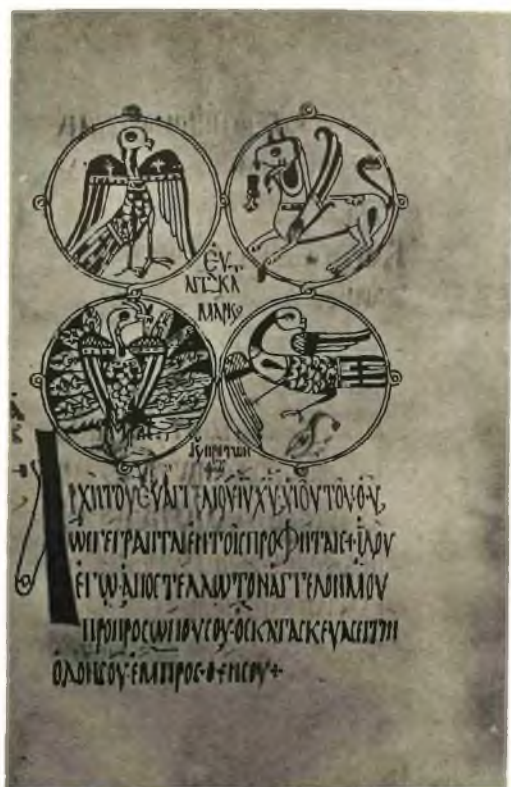 ЄΥ
ΑΓΓ ΚΑ
ΜΑΡΚΟ
ΑΡΧΗ ΤΟΥ ЄΥΑΓΓЄΛΙΟΥ ΙΥ ΧΥ ΥΙΟΥ ΤΟΥ ΘΥ
ΩС ΓЄΓΡΑΠΤΑΙ ЄΝ ΤΟΙС ΠΡΟΦΗΤΑΙС + ΙΔΟΥ
ЄΓΩ ΑΠΟСΤЄΛΛΩ ΤΟΝ ΑΓΓЄΛΟΝ ΜΟΥ
ΠΡΟ ΠΡΟСΩΠΟΥ СΟΥ ΟС ΚΑΤΑСΚЄΥΑСЄΙ ΤΗΝ
ΟΔΟΝ СΟΥ ЄΜΠΡΟСΘЄΝ СΟΥ +